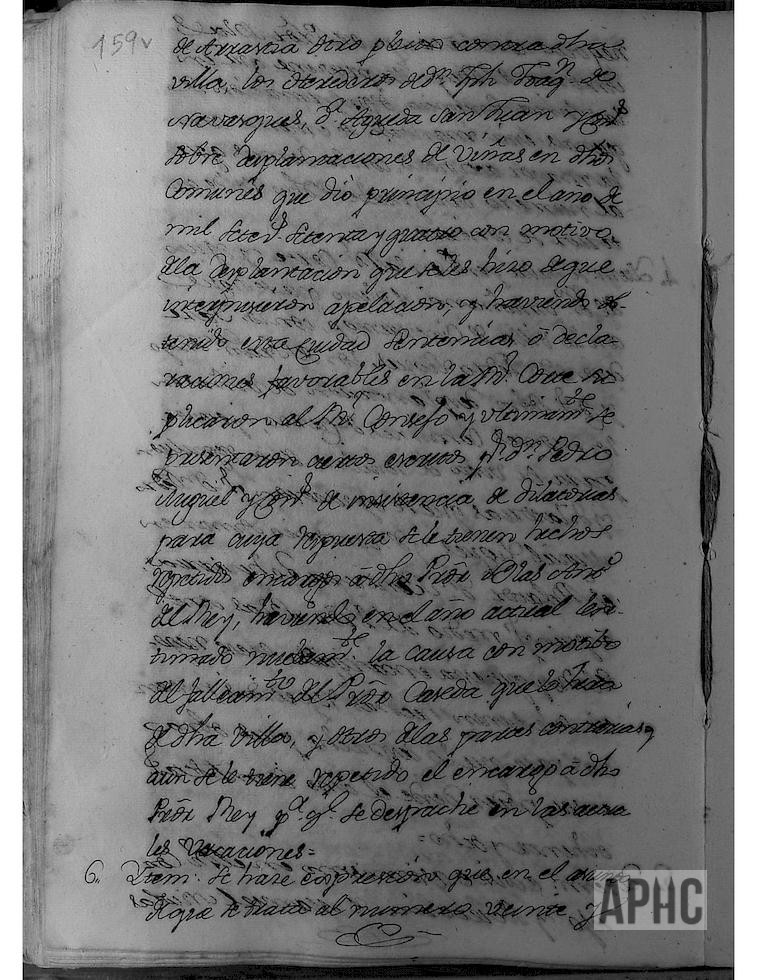 159v
de Arrastia otro pleito contra dha
villa, los herederos de Dn. Jph Joaqn. de
Navasques, Da. Agueda San Juan y
sobre deplantaciones de viñas en dhos
Comunes que dió principio en el año de
mil setecs. setenta y quatro con motivo
dela deplantación que se les hizo de que
interpusieron apelacion, y haviendo ob-
tenido esta Ciudad sentencias ó decla-
raciones favorables en la Rl. Corte su
plicaron al Rl. Consejo y ultimamte. se
presentaron ciertos escritos pr. dn. Pedro
Miguel y de insistencia de dilatorias
para cuya respuesta se le tienen hechos
repetidos encargos á dho Pror. delas
del Rey, haviendo en el año actual lexi-
timado nuebamte. la causa con motibo
del fallecimto. del Pror. Caseda que lo hera
de dha villa, y otros delas partes contrarias,
aun se le tiene repetido el encargo á dho
Pror. Rey pa. qe. se despache en las actua
les vacaciones=
6. Ytem: se haze expresión que en el asunto
de que se trata al numero veinte y
APHC